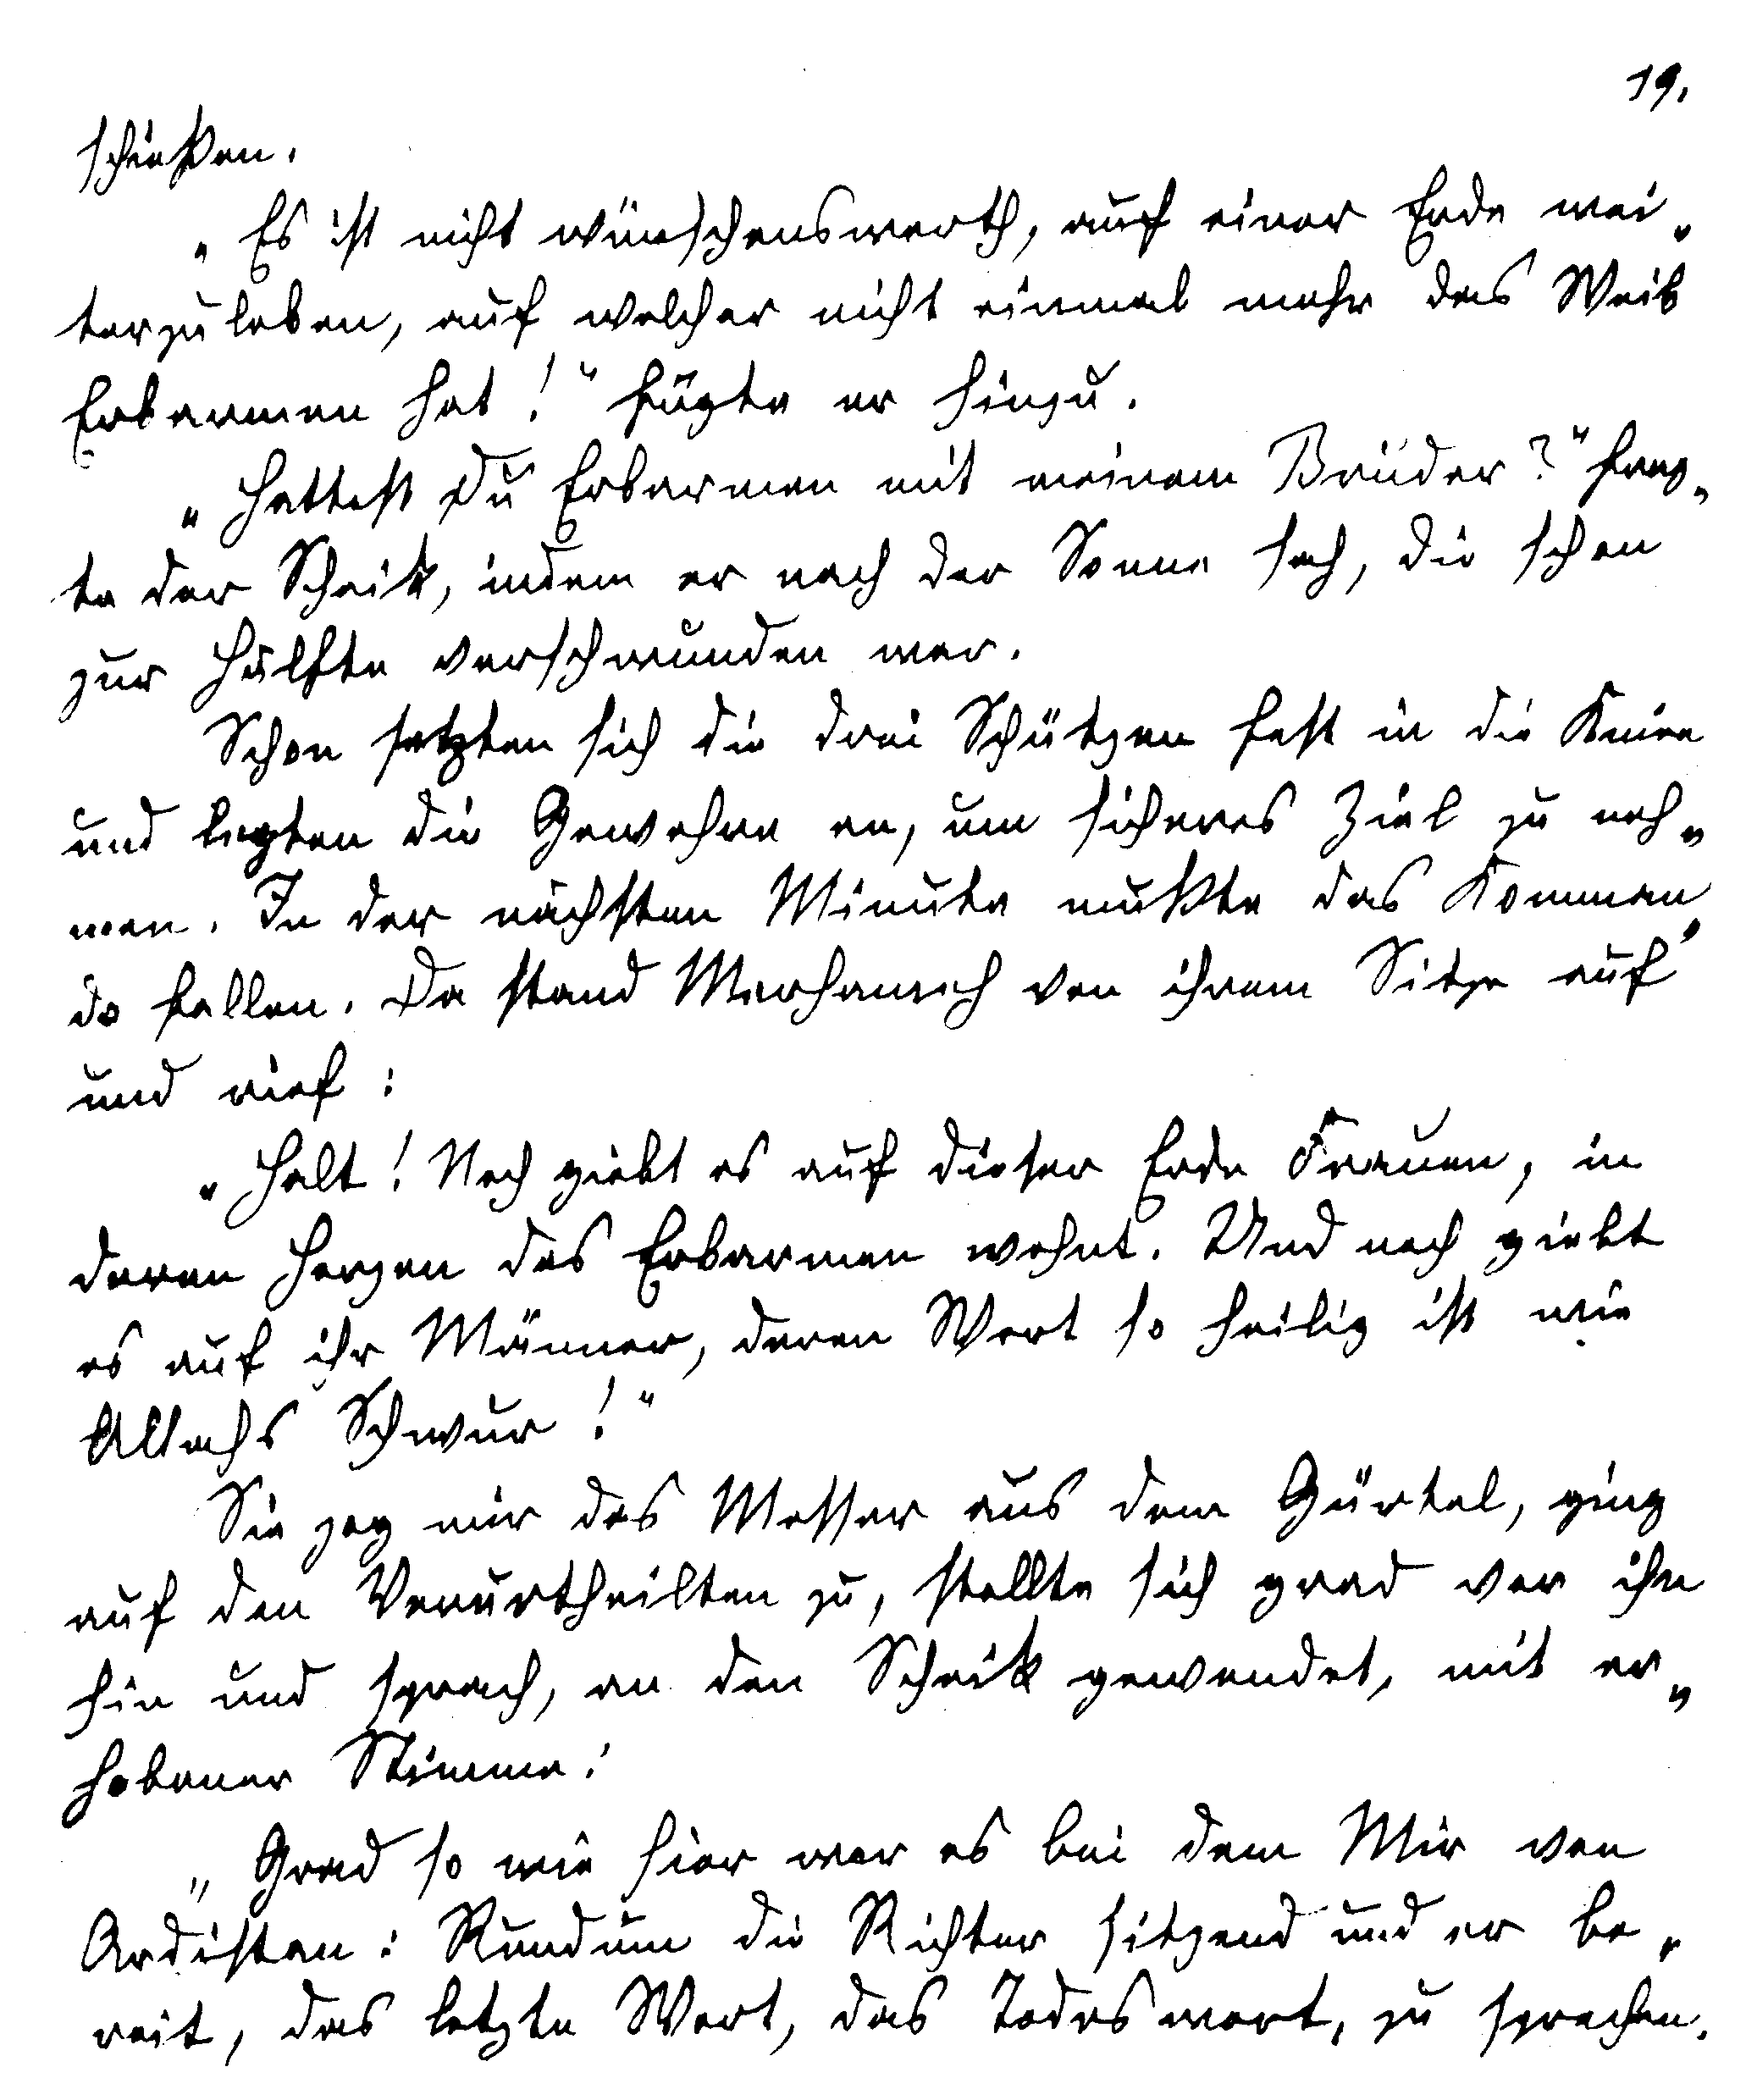 19.
schießen.
„Es ist nicht wünschenswerth, auf einer Erde wei„
terzuleben, auf welcher nicht einmal mehr das Weib
Erbarmen hat!“ fügte er hinzu.
„Hattest Du Erbarmen mit meinem Bruder?“ frag„
te der Scheik, indem er nach der Sonne sah, die schon
zur Hälfte verschwunden war.
Schon setzten sich die drei Schützen fest in die Kniee
und legten die Gewehre an, um sicheres Ziel zu neh„
men. In der nächsten Minute mußte das Komman„
do fallen. Da stand Merhameh von ihrem Sitze auf
und rief:
„Halt! Noch giebt es auf dieser Erde Frauen, in
deren Herzen das Erbarmen wohnt. Und noch giebt
es auf ihr Männer, deren Wort so heilig ist wie
Allahs Schwur!“
Sie zog mir das Messer aus dem Gürtel, ging
auf den Verurtheilten zu, stellte sich grad vor ihn
hin und sprach, an den Scheik gewendet, mit er„
hobener Stimme:
„Grad so wie hier war es bei dem Mir von
Ardistan: Rundum die Richter sitzend und er be„
reit, das letzte Wort, das Todeswort, zu sprechen.